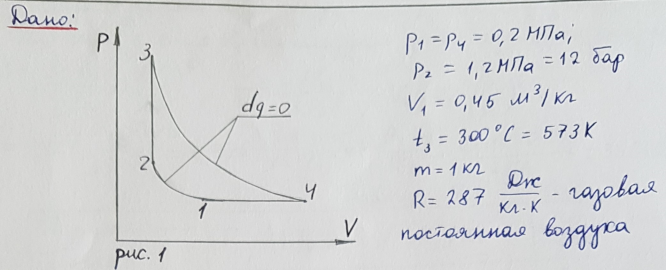 Дано:
P
3
dq=0
2
1
4
V
рис. 1
P₁ = P₄ = 0,2 МПа;
P₂ = 1,2 МПа = 12 бар
V₁ = 0,45 м³/кг
t₃ = 300°C = 573 К
m = 1 кг
R = 287 Дж/кг·К - газовая
постоянная воздуха